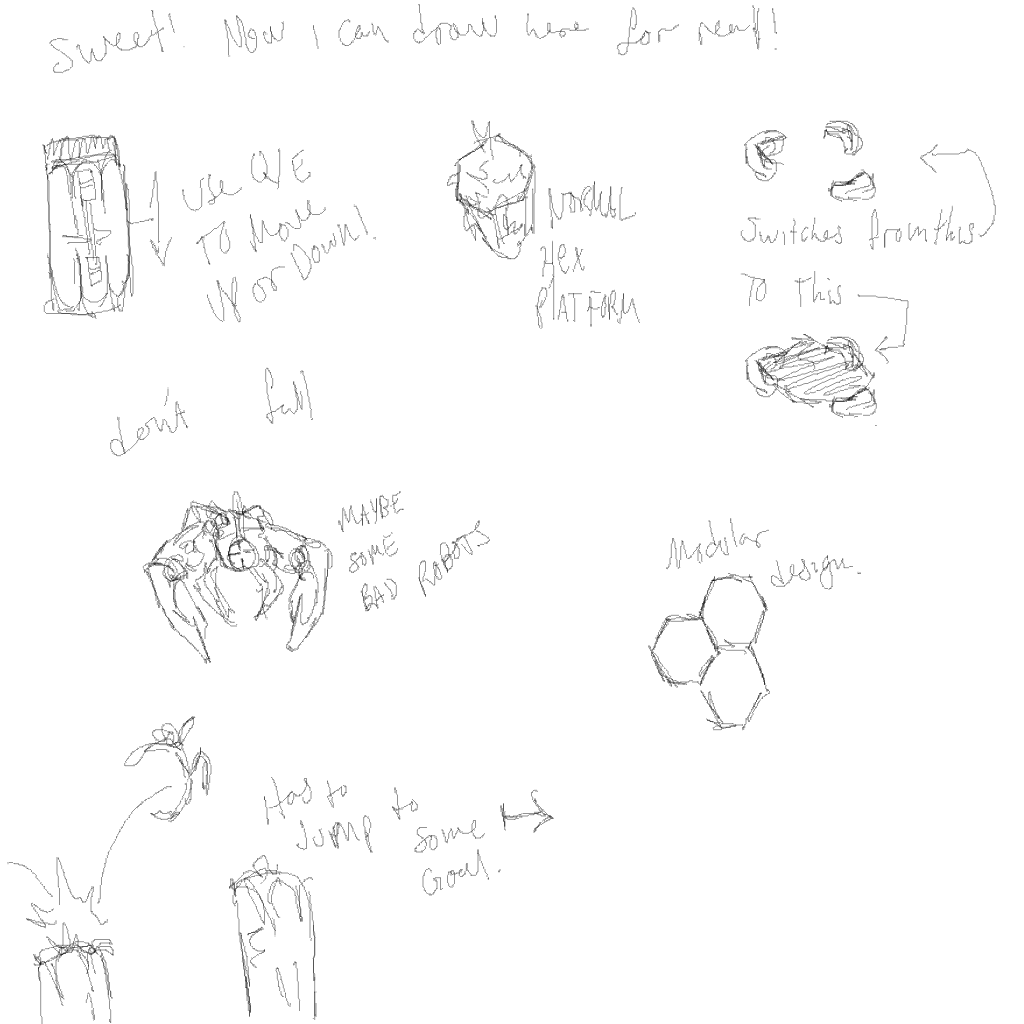 Sweet! Now I can draw here for real!
Use Q/E
To Move
UP or Down!
NORMAL
HEX
PLATFORM
Switches from this
To this
don't fall
MAYBE
SOME
BAD ROBOTS
Modular
design.
Has to
Jump to
some
Goal.